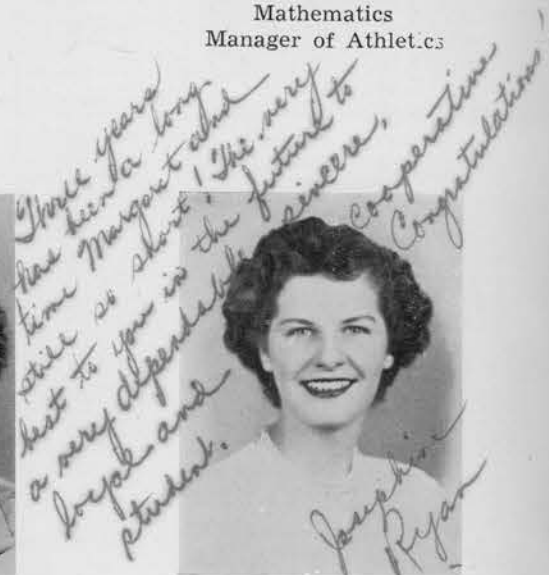 Mathematics
Manager of Athletics
Three years
has been a long
time Margaret and
still so short! The very
best to you in the future to
a very dependable, sincere,
loyal and cooperative
student. Congratulations!
Josephine
Ryan